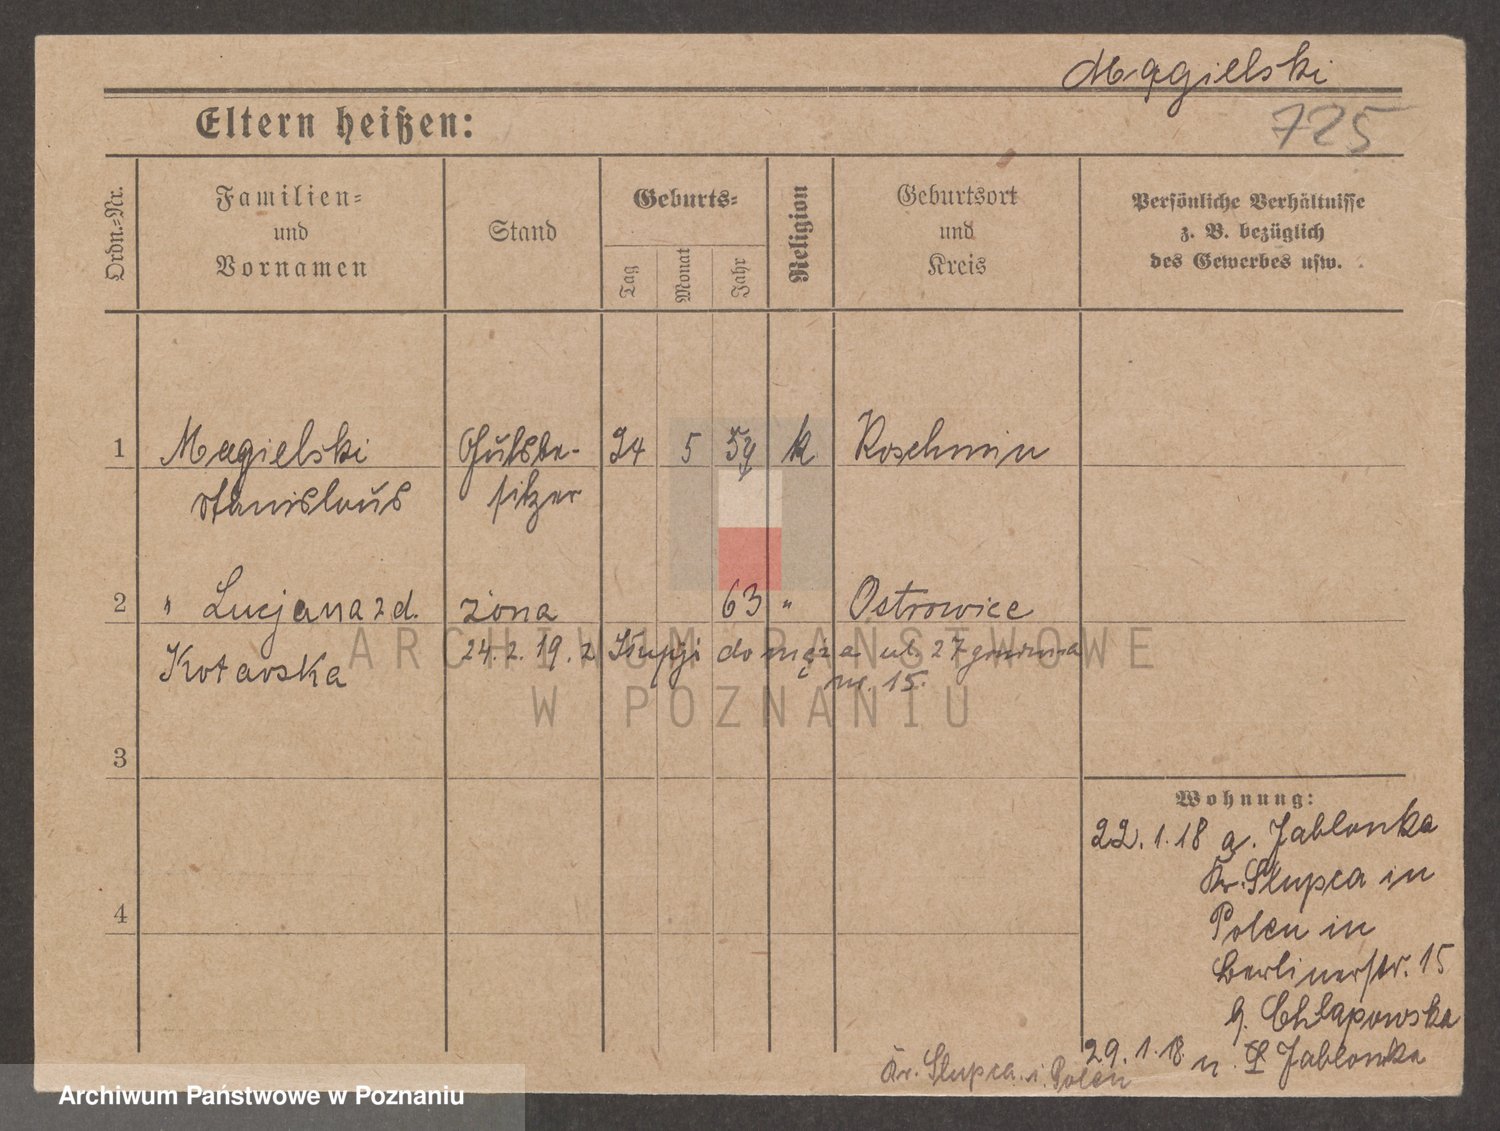 Mągielski
725
Eltern heißen:
Ordn.-Nr.
Familien-
und
Vornamen
Stand
Geburts-
Tag
Monat
Jahr
Religion
Geburtsort
und
Kreis
Persönliche Verhältnisse
z. B. bezüglich
des Gewerbes usw.
1 Magielski Gutsbe- 24 5 59 k Koschmin
Stanislaus sitzer
2 " Lucjana z d. żona 63 " Ostrowice
24.2.19. z Słupcji do męża ul. 27 grudnia
nr. 15.
3
4
Wohnung:
22.1.18 a. Jablonka
Kr. Slupca in
Polen in
Berlinerstr. 15
b. Chlapowska
29.1.18 n. Jablonka
Kr. Slupca i. Polen
ARCHIWUM PAŃSTWOWE
W POZNANIU
Archiwum Państwowe w Poznaniu